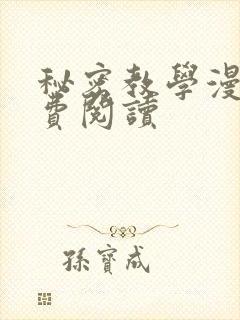 秘密教學漫
費閱讀
孫寶成